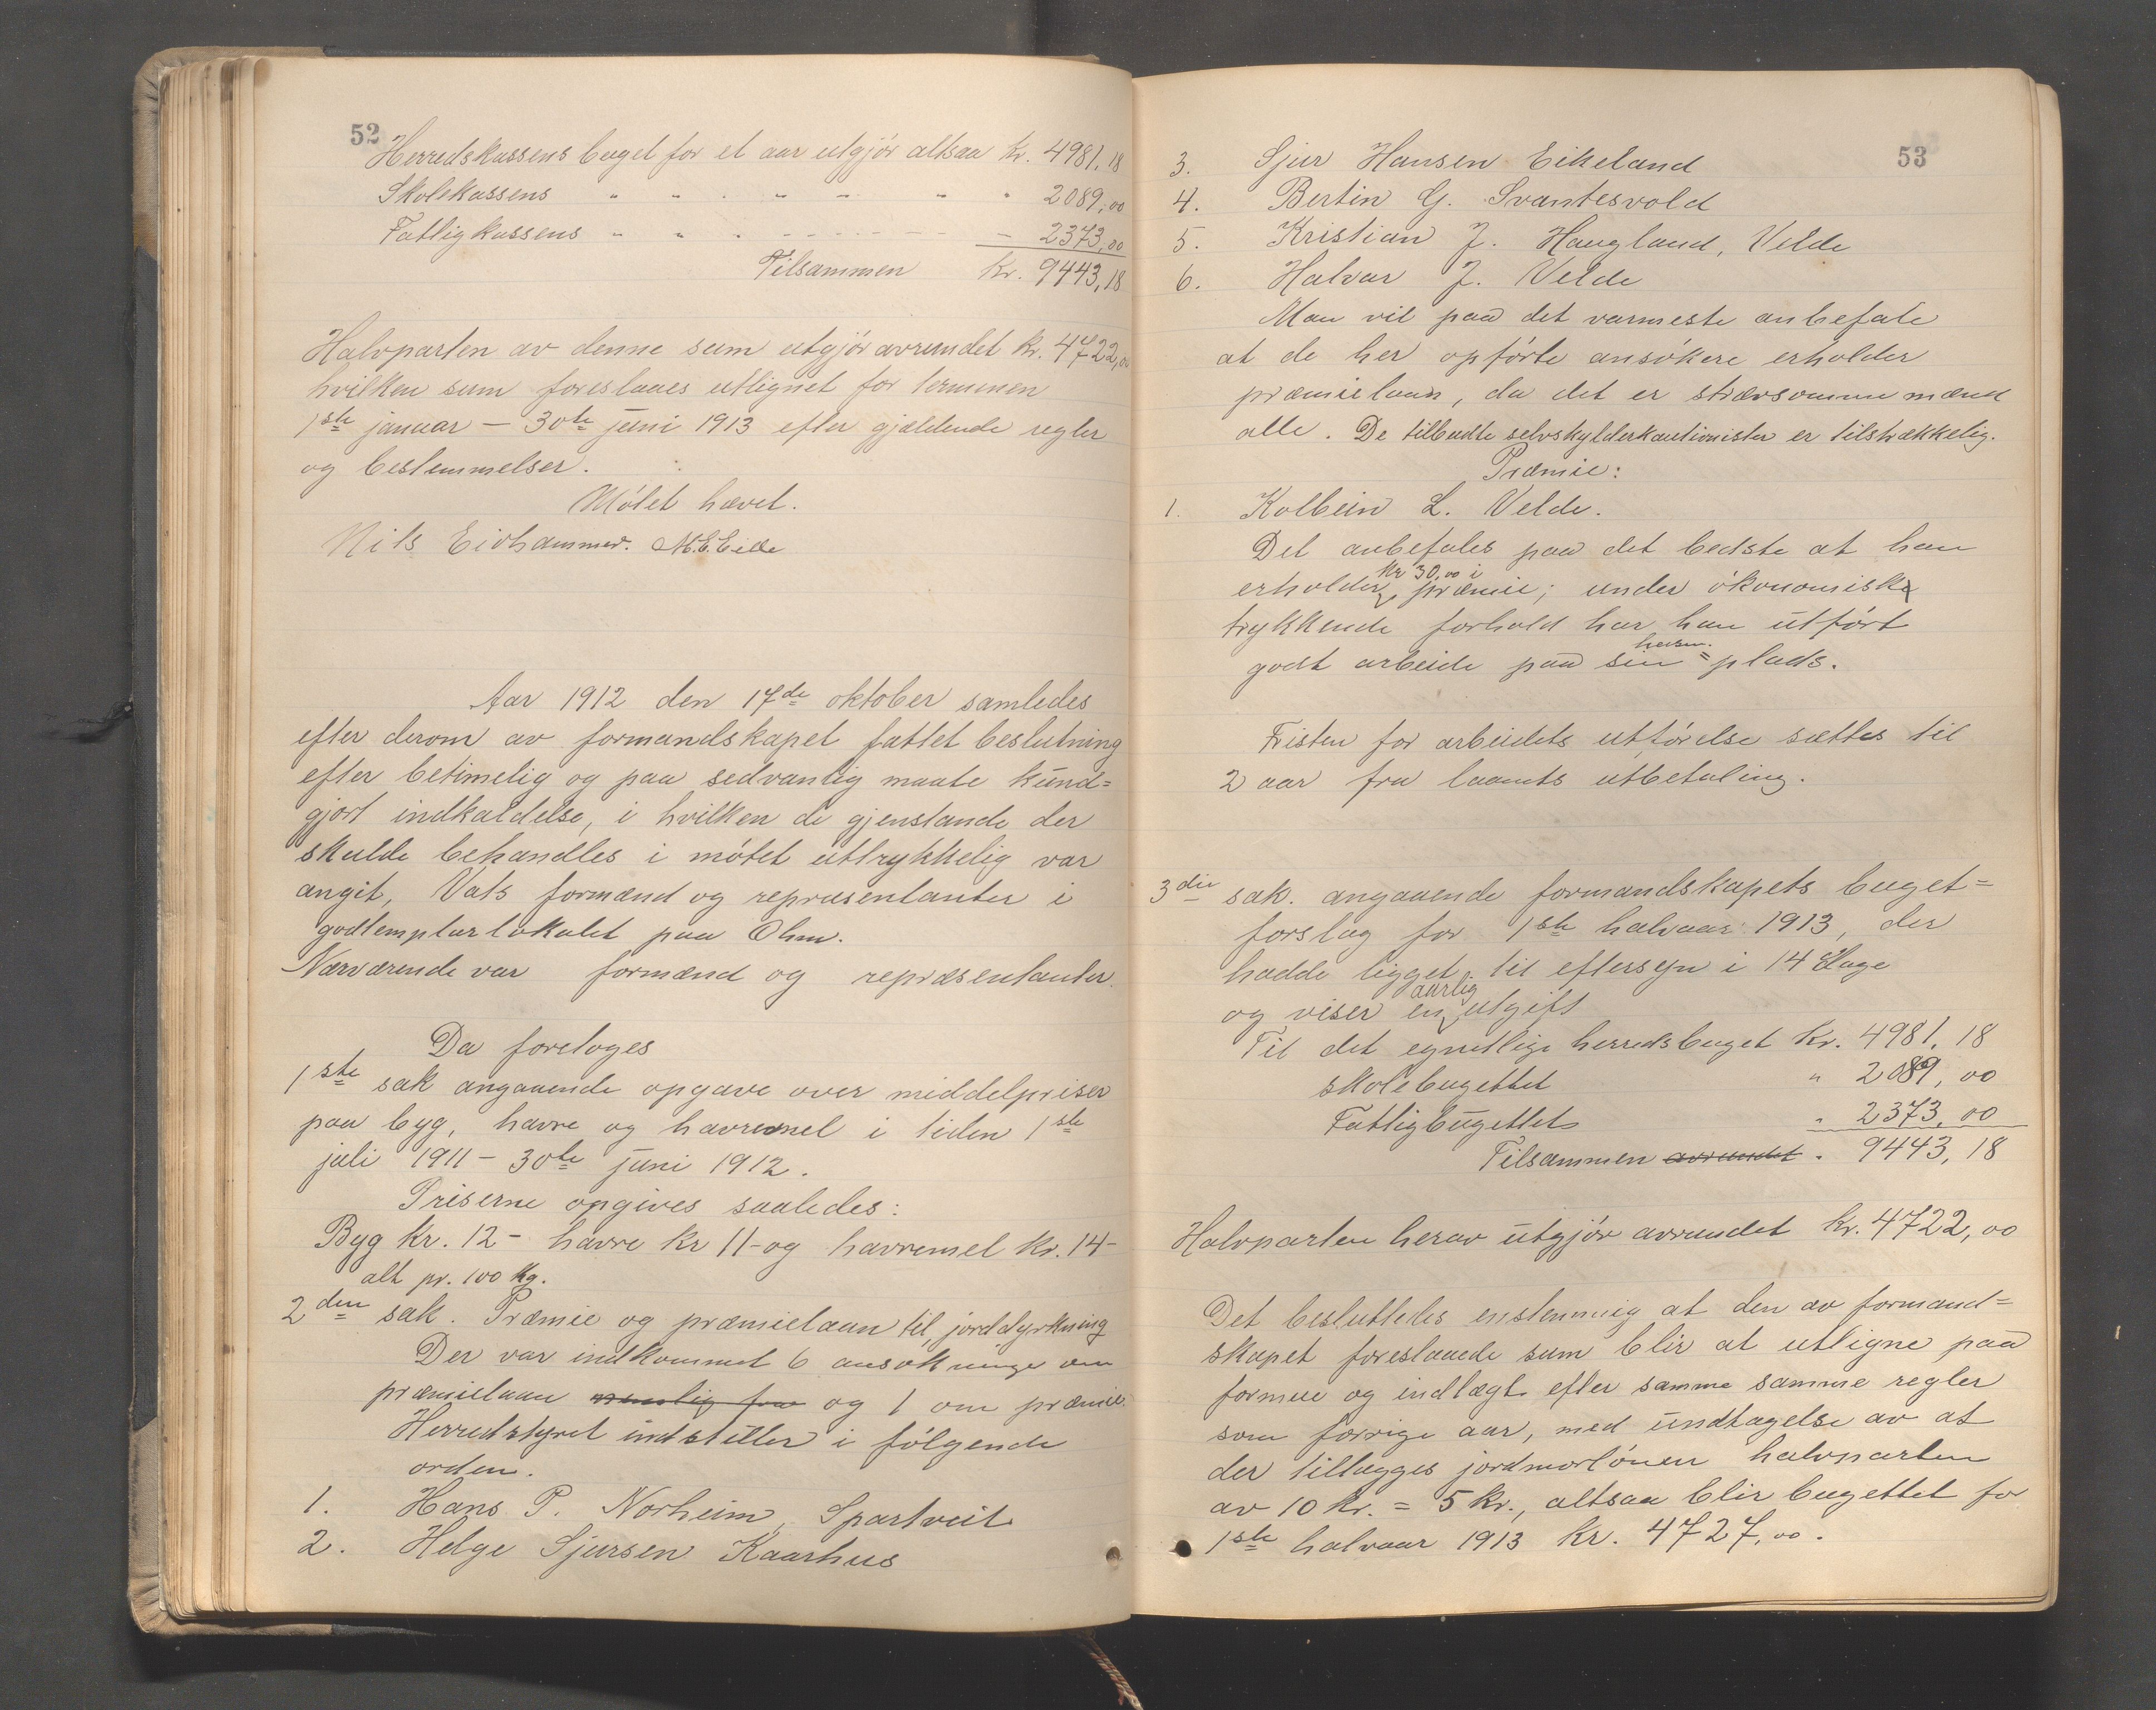 52
Herredskassens buget for et aar utgjør altsaa kr. 4981,18
Skolekassens " " " " " " " 2089,00
Fattigkassens " " " - - - - - - 2373,00
Tilsammen kr. 9443,18
Halvparten av denne sum utgjør avrundet kr. 4722,00
hvilken sum foreslaaes utlignet for terminen
1ste januar – 30te juni 1913 efter gjældende regler
og bestemmelser.
Møtet hævet.
Nils Eidhammer. M.E.Eide
Aar 1912 den 17de oktober samledes
efter derom av formandskapet fattet beslutning
efter betimelig og paa sedvanlig maate kund=
gjort indkaldelse, i hvilken de gjenstande der
skulde behandles i møtet uttrykkelig var
angit, Vats formænd og repræsentanter i
godtemplarlokalet paa Ohm.
Nærværende var formænd og repræsentanter.
Da foretoges
1ste sak angaaende opgave over middelpriser
paa byg, havre og havremel i tiden 1ste
juli 1911 – 30te juni 1912.
Priserne opgives saaledes:
Byg kr. 12 – havre kr 11 – og havremel kr. 14 –
alt pr. 100 kg.
2den sak. Præmie og præmielaan til jorddyrkning
Der var indkommet 6 ansøkninge om
præmielaan nemlig fra og 1 om præmie.
Herredstyret indstiller i følgende
orden.
1. Hans P. Norheim, Spartveit
2. Helge Sjursen Kaarhus
53
3. Sjur Hansen Eikeland
4. Bertin G. Svantesvold
5. Kristian J. Haugland, Velde
6. Halvar J. Velde
Man vil paa det varmeste anbefale
at de her opførte ansøkere erholder
præmielaan, da det er strævsomme mænd
alle. De tilbudte selvskylderkautionister er tilstrækkelig.
Præmie:
1. Kolbein L. Velde.
Det anbefales paa det bedste at han
kr 30,00 i
erholder præmie; under økonomisk
trykkende forhold har han utført
godt arbeide paa sin husm.=plads.
Fristen for arbeidets utførelse sættes til
2 aar fra laanets utbetaling.
3die sak. angaaende formandskapets buget=
forslag for 1ste halvaar 1913, der
hadde ligget til eftersyn i 14 dage
og viser en aarlig utgift
Til det egentlige herredsbuget kr. 4981,18
skolebugettet " 2089,00
Fattigbugettet " 2373,00
Tilsammen avrundet " 9443,18
Halvparten herav utgjør avrundet kr. 4722,00
Det besluttedes enstemmig at den av formand=
skapet foreslaaede sum blir at utligne paa
formue og indtægt efter samme samme regler
som forrige aar, med undtagelse av at
der tillægges jordmorlønen halvparten
av 10 kr. = 5 kr., altsaa blir bugettet for
1ste halvaar 1913 kr. 4727,00.